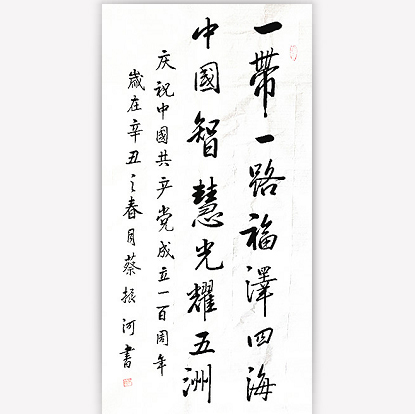 一帶一路福澤四海
中國智慧光耀五洲
庆祝中國共产党成立一百周年
歲在辛丑之春月蔡振河書